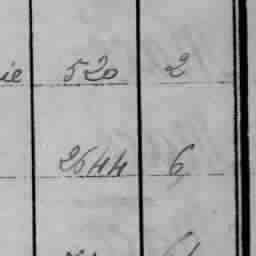 ie 520 2
2544 6